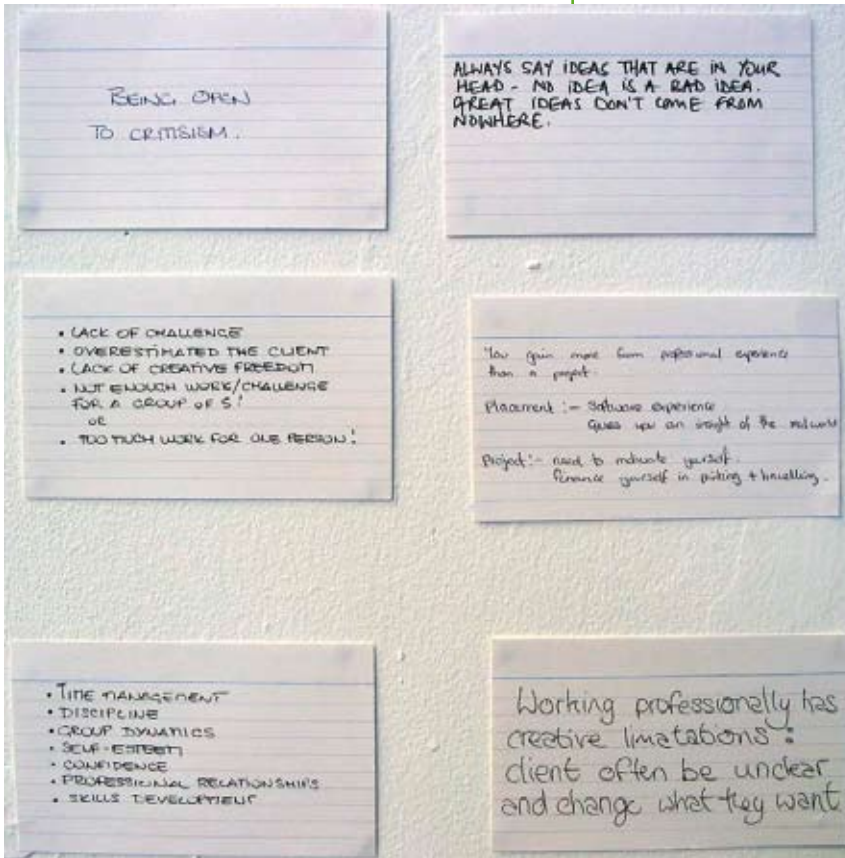 BEING OPEN
TO CRITISISM.
ALWAYS SAY IDEAS THAT ARE IN YOUR
HEAD - NO IDEA IS A BAD IDEA.
GREAT IDEAS DON'T COME FROM
NOWHERE.
• LACK OF CHALLENGE
• OVERESTIMATED THE CLIENT
• LACK OF CREATIVE FREEDOM
• NOT ENOUGH WORK/CHALLENGE
FOR A GROUP OF 5!
OR
• TOO MUCH WORK FOR ONE PERSON!
You gain more from professional experience
than a project.
Placement :- Software experience
Gives you an insight of the real world
Project :- need to motivate yourself.
finance yourself in printing + travelling.
• TIME MANAGEMENT
• DISCIPLINE
• GROUP DYNAMICS
• SELF-ESTEEM
• CONFIDENCE
• PROFESSIONAL RELATIONSHIPS
• SKILLS DEVELOPMENT
Working professionally has
creative limatations :
client often be unclear
and change what they want